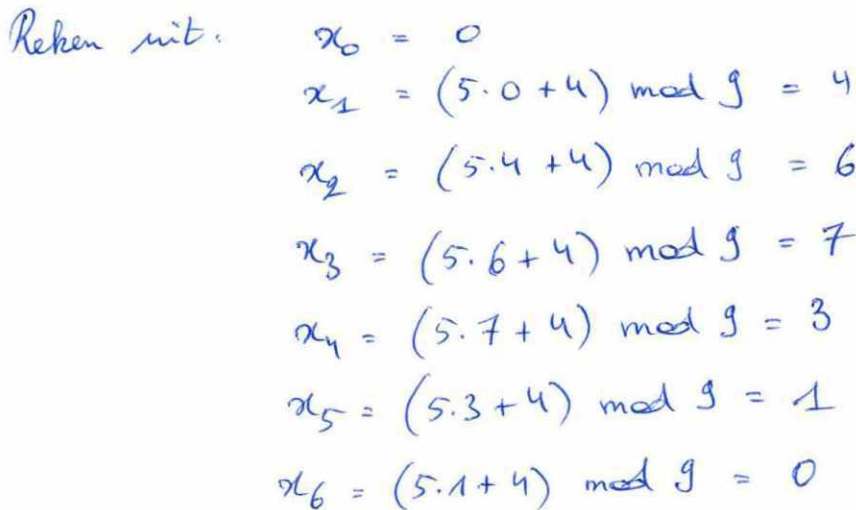 Reken uit: x₀ = 0
x₁ = (5·0+4) mod 9 = 4
x₂ = (5·4+4) mod 9 = 6
x₃ = (5·6+4) mod 9 = 7
x₄ = (5·7+4) mod 9 = 3
x₅ = (5·3+4) mod 9 = 1
x₆ = (5·1+4) mod 9 = 0